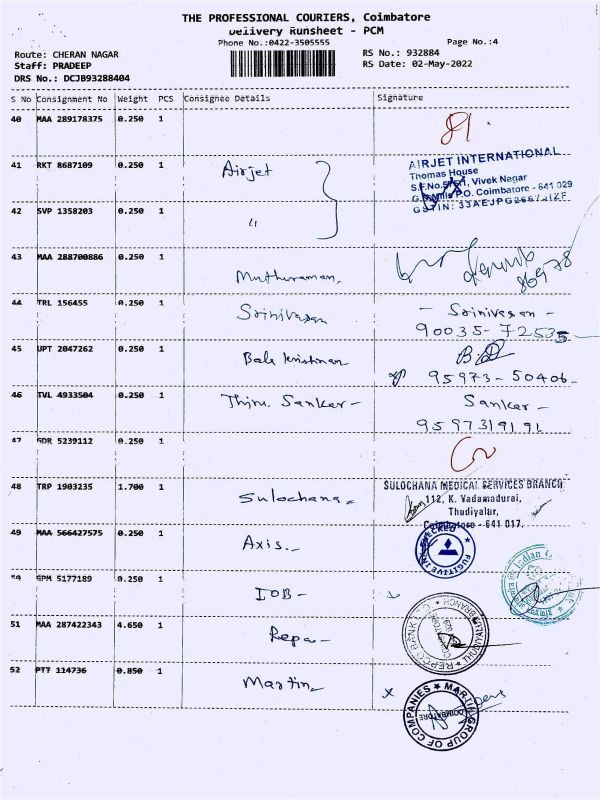 THE PROFESSIONAL COURIERS, Coimbatore
Delivery Runsheet - PCM
Phone No.:0422-3505555
Page No.:4
Route: CHERAN NAGAR
RS No.: 932884
Staff: PRADEEP
RS Date: 02-May-2022
DRS No.: DCJB93288404
S No Consignment No Weight PCS Consignee Details Signature
40 MAA 289178375 0.250 1
41 RKT 8687109 0.250 1 Airjet
AIRJET INTERNATIONAL
Thomas House
Vivek Nagar
P.O. Coimbatore - 641 029
42 SVP 1358203 0.250 1 "
43 MAA 288700886 0.250 1 Muthuraman,
44 TRL 156455 0.250 1 Srinivasan - Srinivasan -
90035-72535
45 UPT 2047262 0.250 1 Bala Krishnan
95973-50406-
46 TVL 4933504 0.250 1 Thiru Sanker - Sanker -
9597319191
47 GDR 5239112 0.250 1
48 TRP 1903235 1.700 1 Sulochana
SULOCHANA MEDICAL SERVICES BRANCH
112, K. Vadamadurai,
Thudiyalur,
Coimbatore - 641 017.
49 MAA 566427575 0.250 1 Axis.
50 GPM 5177189 0.250 1 IOB -
Indian
51 MAA 287422343 4.650 1 Repco -
REPCO BANK
52 PTT 114736 0.850 1 Martin
MARTIN GROUP OF COMPANIES
COIMBATORE